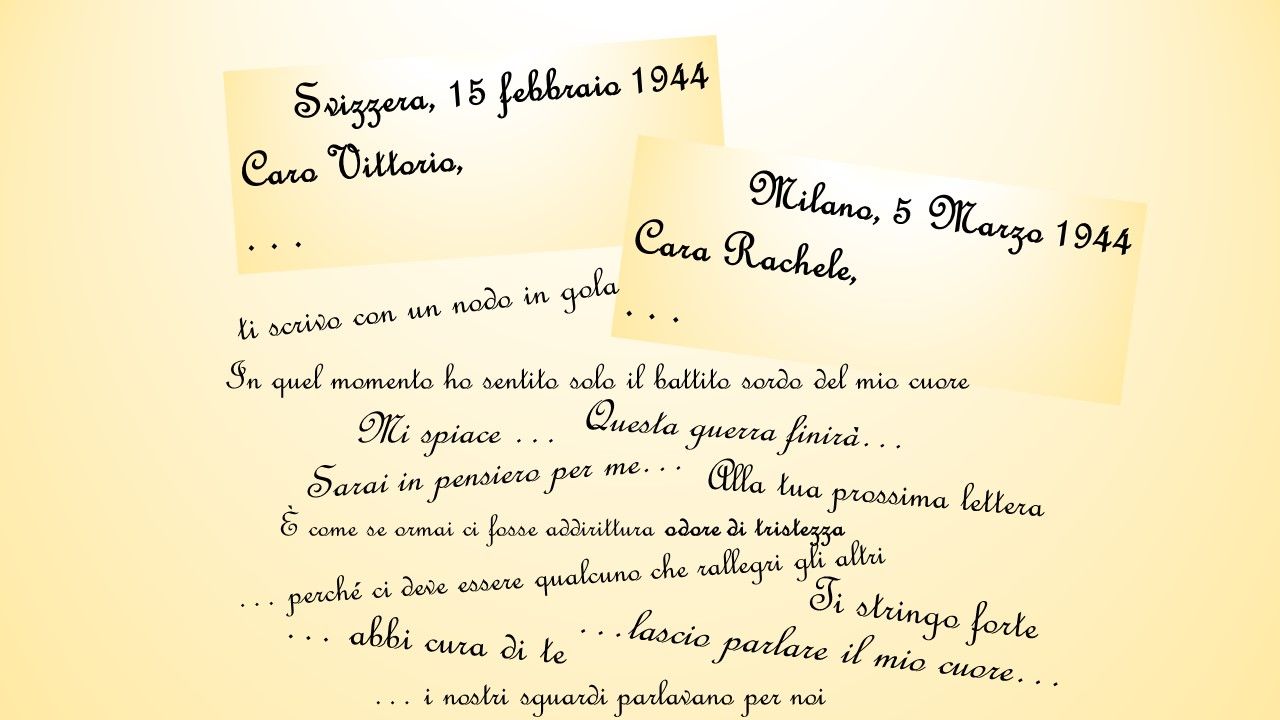 Svizzera, 15 febbraio 1944
Caro Vittorio,
. . .
Milano, 5 Marzo 1944
Cara Rachele,
. . .
ti scrivo con un nodo in gola
In quel momento ho sentito solo il battito sordo del mio cuore
Mi spiace ...
Questa guerra finirà...
Sarai in pensiero per me...
Alla tua prossima lettera
È come se ormai ci fosse addirittura odore di tristezza
... perché ci deve essere qualcuno che rallegri gli altri
Ti stringo forte
... abbi cura di te
...lascio parlare il mio cuore...
... i nostri sguardi parlavano per noi